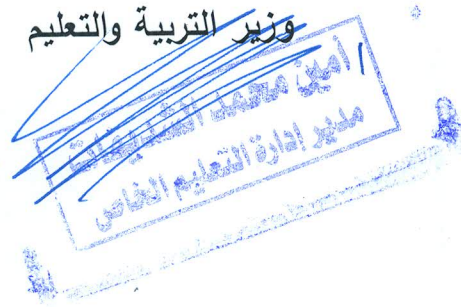 وزير التربية والتعليم
أمين محمد الشديفات
مدير إدارة التعليم الخاص